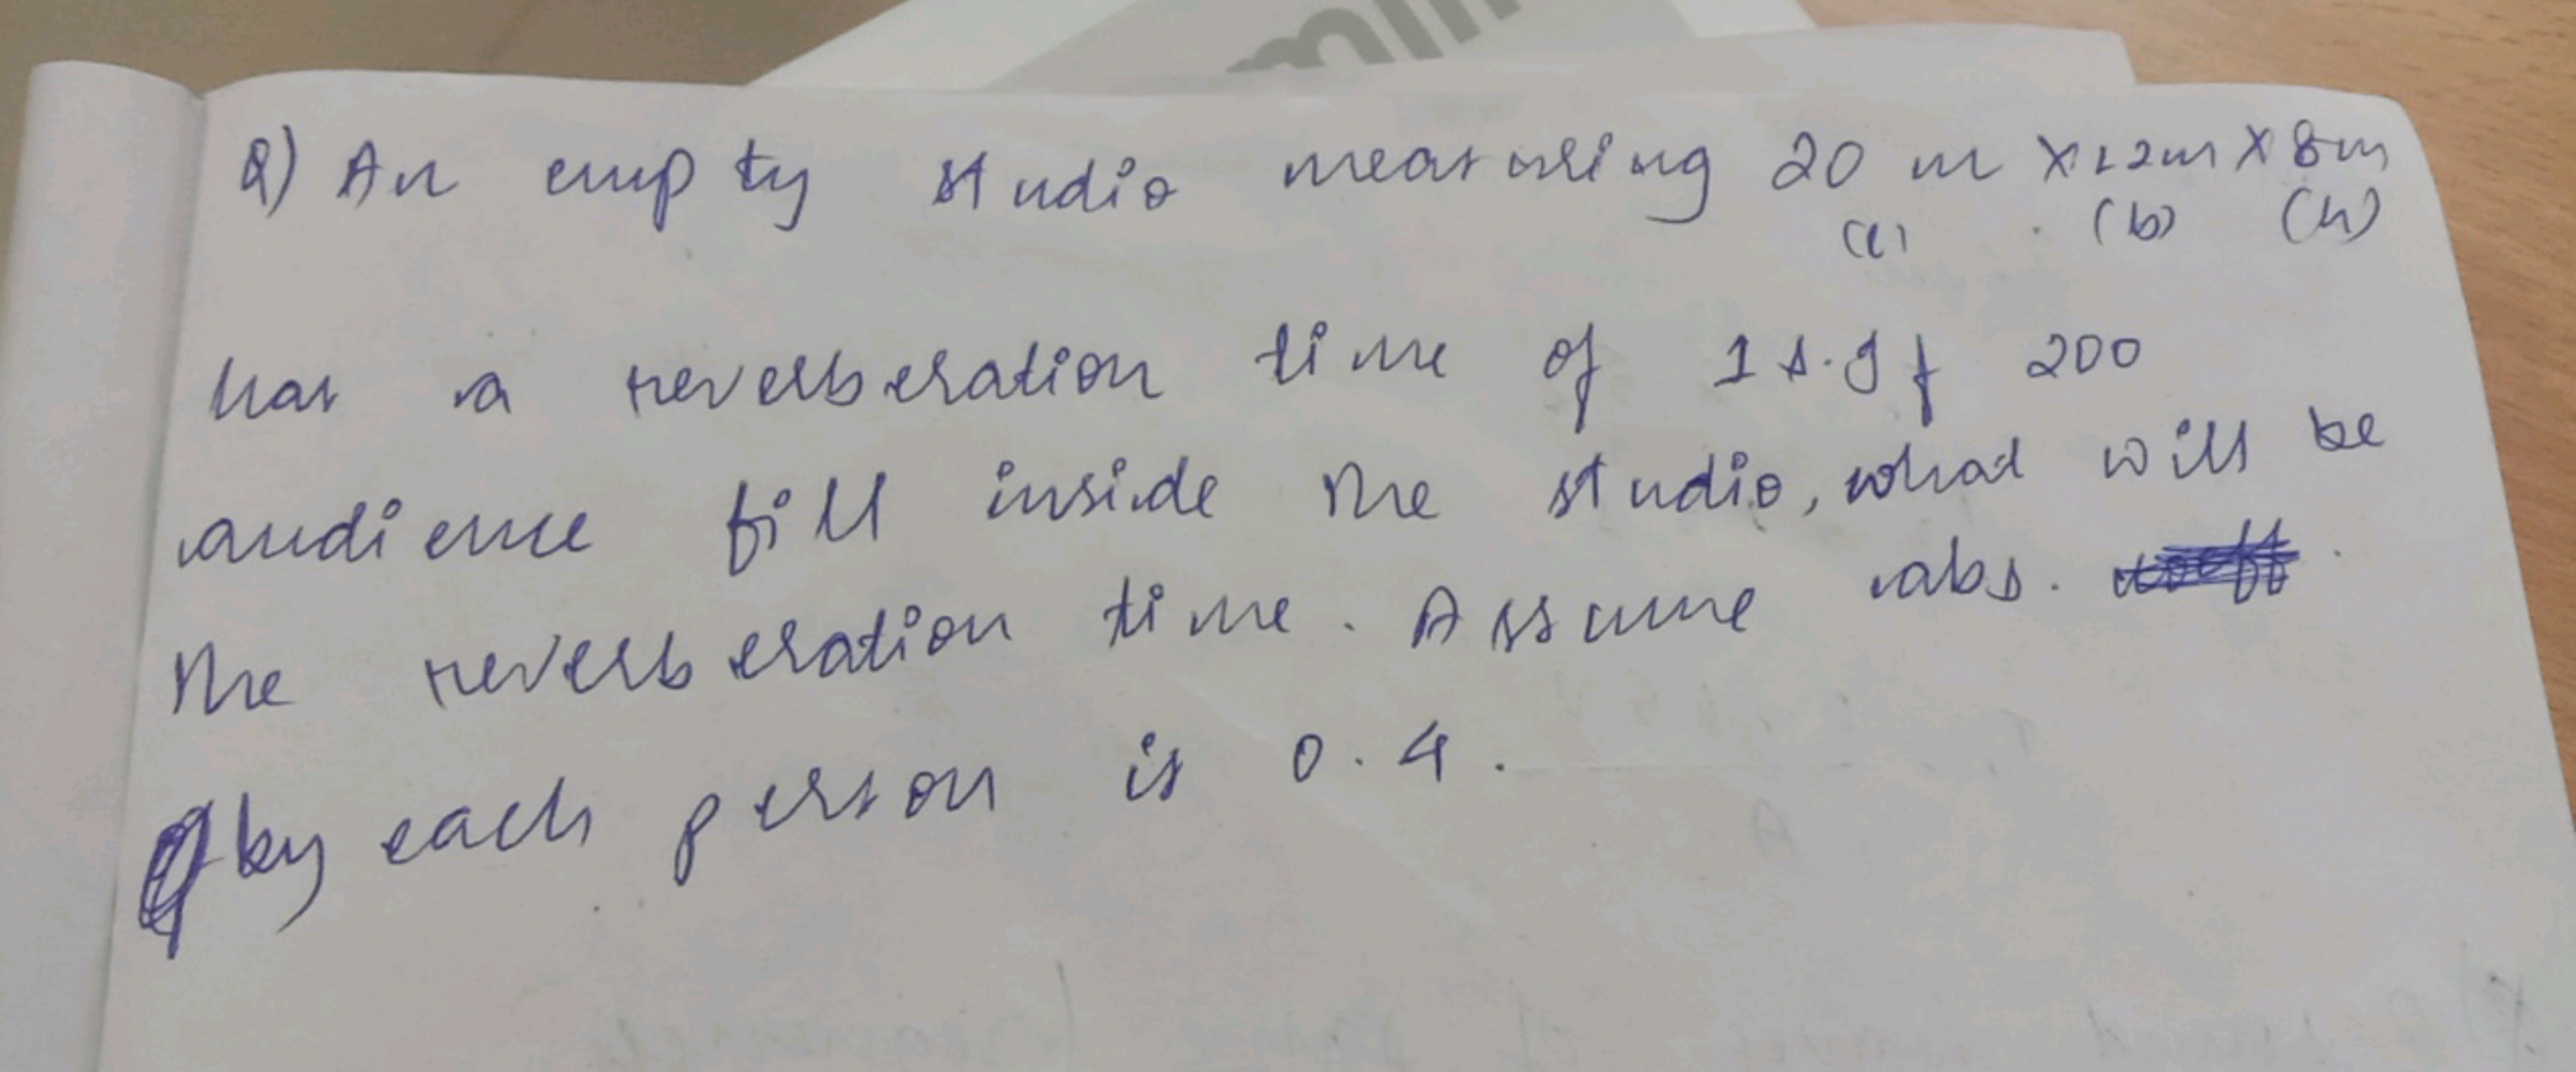 Q) An empty studio measuring 20 m X 12m X 8m
(l) (b) (h)
has a reverberation time of 1 s. If 200
audience fill inside the studio, what will be
the reverberation time. Assume abs.
by each person is 0.4.